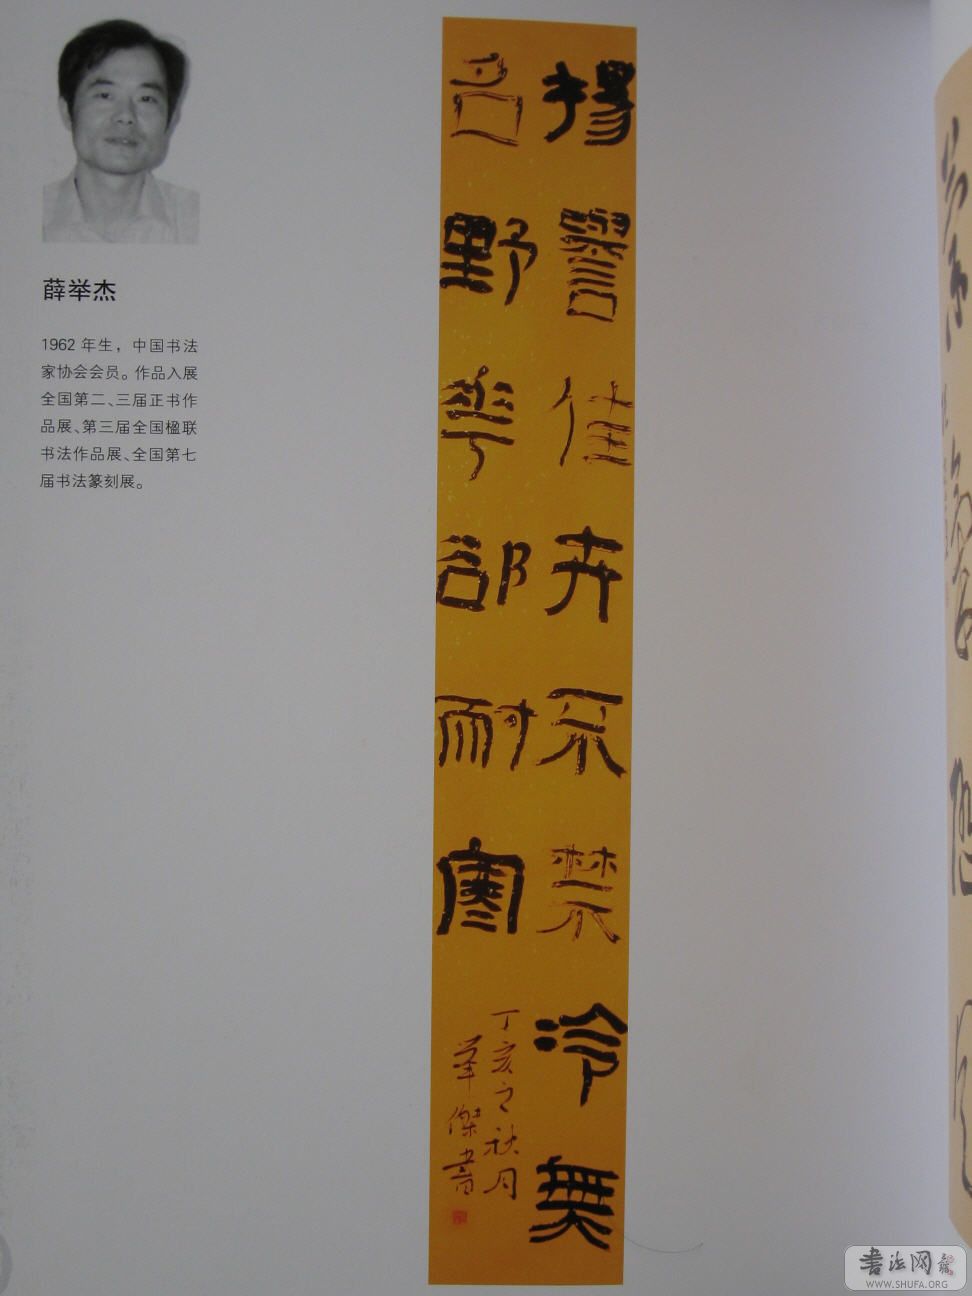 薛举杰
1962 年生，中国书法
家协会会员。作品入展
全国第二、三届正书作
品展、第三届全国楹联
书法作品展、全国第七
届书法篆刻展。
揚譽佳卉不禁冷無
名野華卻耐寒
丁亥之秋月
舉傑書
书法网
WWW.SHUFA.ORG